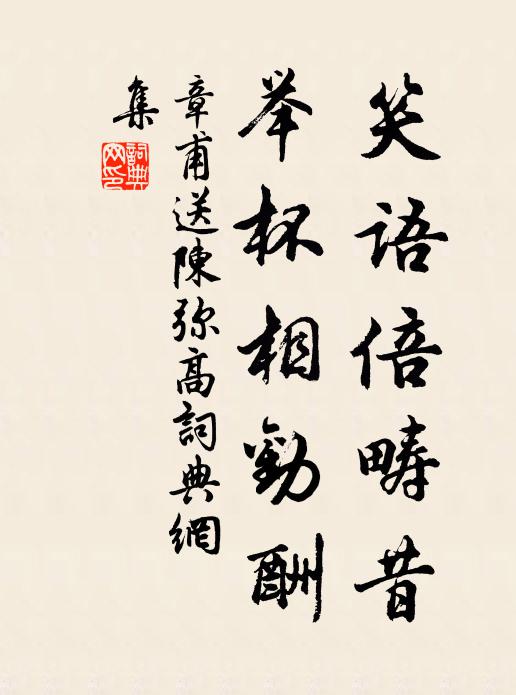 笑語倍疇昔
举杯相勸酬
章甫送陳弥高詞典網
集
詞典網印